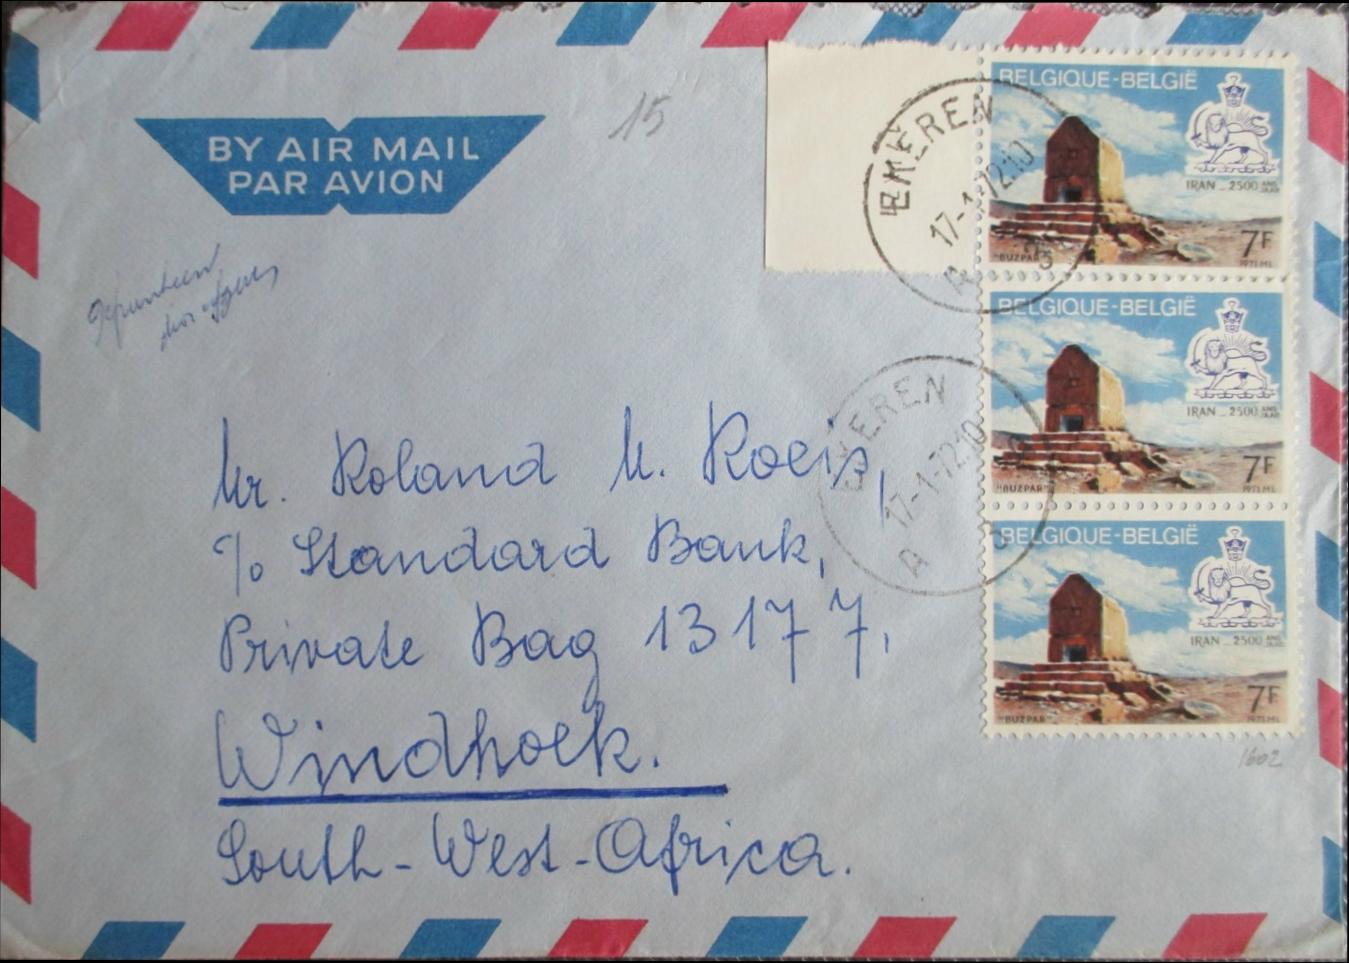 BY AIR MAIL
PAR AVION
15
EKEREN
17-1-72.10
A 3
BELGIQUE-BELGIË
IRAN _ 2500 ANS JAAR
"BUZPAR"
7F
1971 ML
BELGIQUE-BELGIË
IRAN _ 2500 ANS JAAR
"BUZPAR"
7F
1971 ML
EKEREN
17-1-72.10
A 3
BELGIQUE-BELGIË
IRAN _ 2500 ANS JAAR
"BUZPAR"
7F
1971 ML
1602
Mr. Roland M. Roeis,
c/o Standard Bank,
Private Bag 13177,
Windhoek.
South-West-Africa.